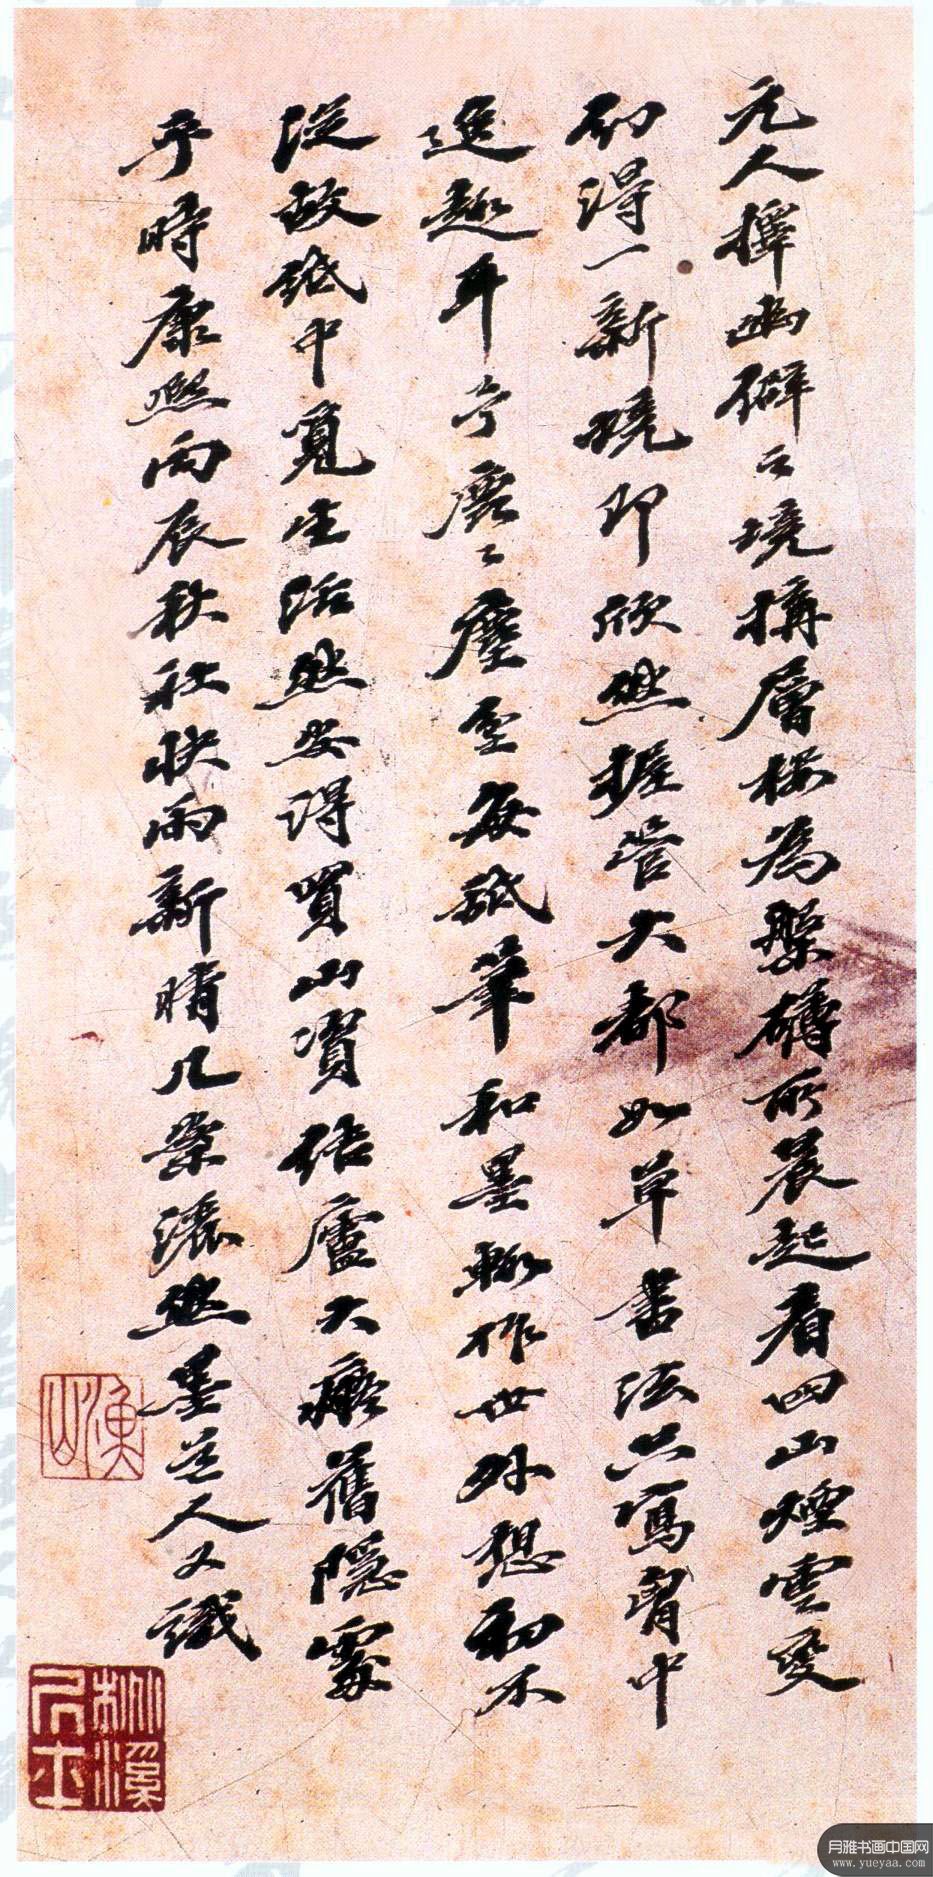 元人擇幽僻之境搆層樓為槃礴所晨起看四山煙雲變
幻得一新境即欣然握管大都如草書法只寫胷中
逸趣耳予麤麤塵壒每舐筆和墨輒作世外想初不
從故紙中覓生活然安得買山資結廬大癡舊隱處
乎時康熙丙辰秋社快雨新晴几案瀟然墨井道人又識
漁山
桃溪居士
月雅书画中国网
www.yueyaa.com